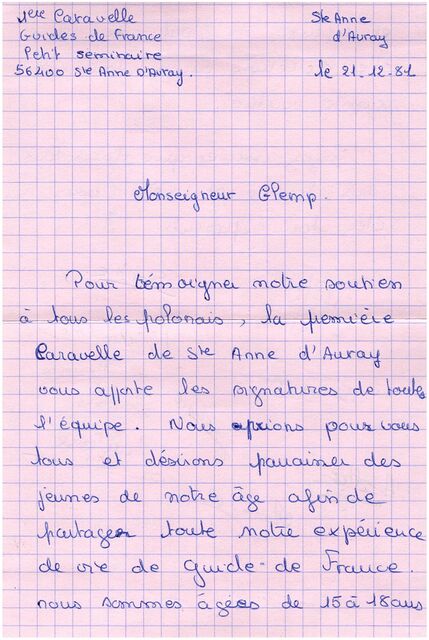 1ere Caravelle
Guides de France
Petit seminaire
56400 Ste Anne D'Auray.
Ste Anne
d'Auray
le 21-12-81
Monseigneur Glemp.
Pour témoigner notre soutien
à tous les polonais, la première
Caravelle de Ste Anne d'Auray
vous apporte les signatures de toute
l'équipe. Nous prions pour vous
tous et désirons parrainer des
jeunes de notre âge afin de
partager toute notre expérience
de vie de Guide-de France.
nous sommes âgées de 15 à 18 ans